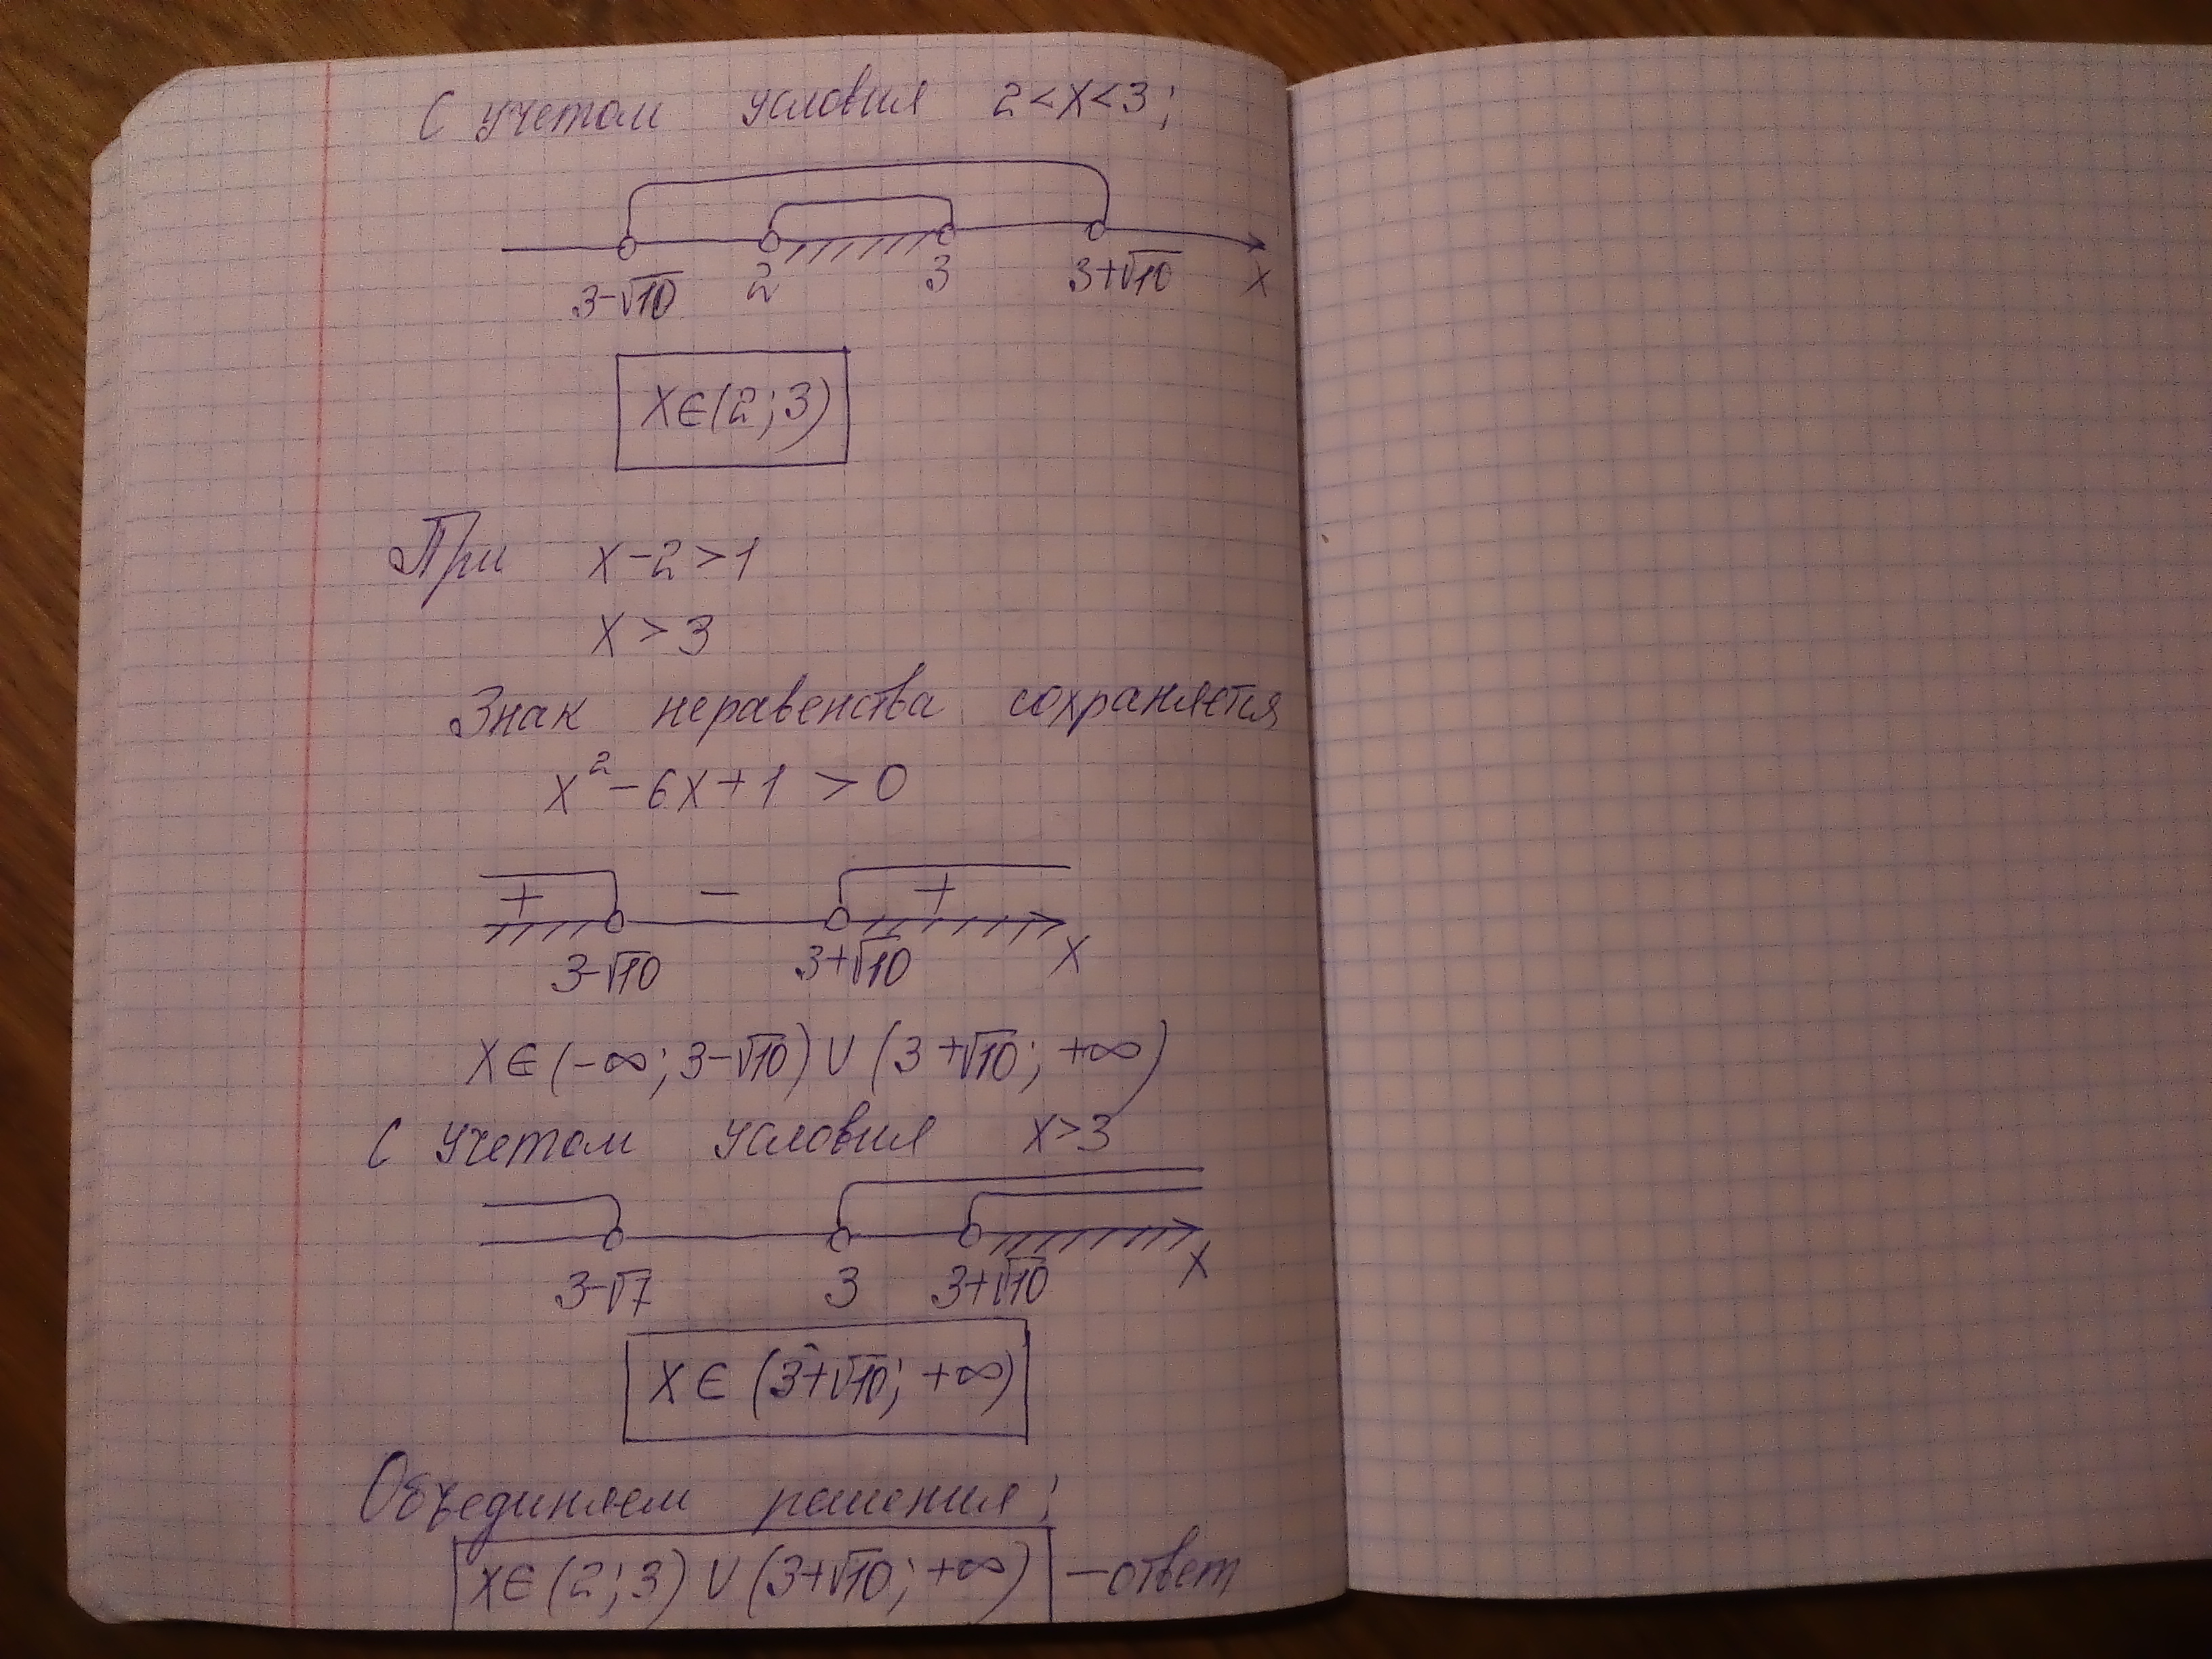 С учетом условия 2<x<3;
3-√10 2 3 3+√10 x
x∈(2;3)
При x-2>1
x>3
Знак неравенства сохраняется
x²-6x+1 >0
+ - +
3-√10 3+√10 x
x∈(-∞; 3-√10) ∪ (3+√10; +∞)
С учетом условия x>3
3-√7 3 3+√10 x
x∈ (3+√10; +∞)
Объединяем решения:
x∈(2;3) ∪ (3+√10; +∞) -ответ